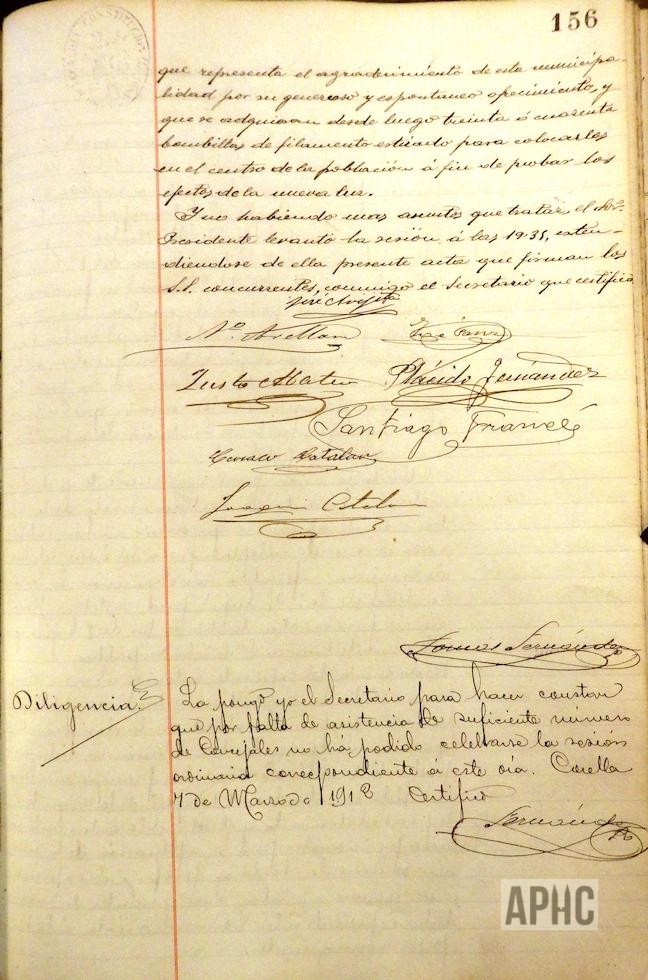 156
que representa el agradecimiento de esta municipa-
lidad por su generoso y espontaneo ofrecimiento, y
que se adquieran desde luego treinta ó cuarenta
bombillas de filamento estirado para colocarlas
en el centro de la población á fin de probar los
efectos de la nueva luz.
Y no habiendo mas asuntos que tratar, el Sr.
Presidente levantó la sesión á las 19.35, exten-
diendose de ella presente acta que firman los
S.S. concurrentes, conmigo el Secretario que certifico
Nº. Arellano
Justo Mateo Plácido Fernández
Santiago Francés
Catalan
Joaquin Catalan
Tomas Fernández
Diligencia.
La pongo yo el Secretario para hacer constar
que por falta de asistencia de suficiente número
de Concejales no há podido celebrarse la sesión
ordinaria correspondiente á este dia. Corella
7 de Marzo de 1912 Certifico
Fernández
APHC